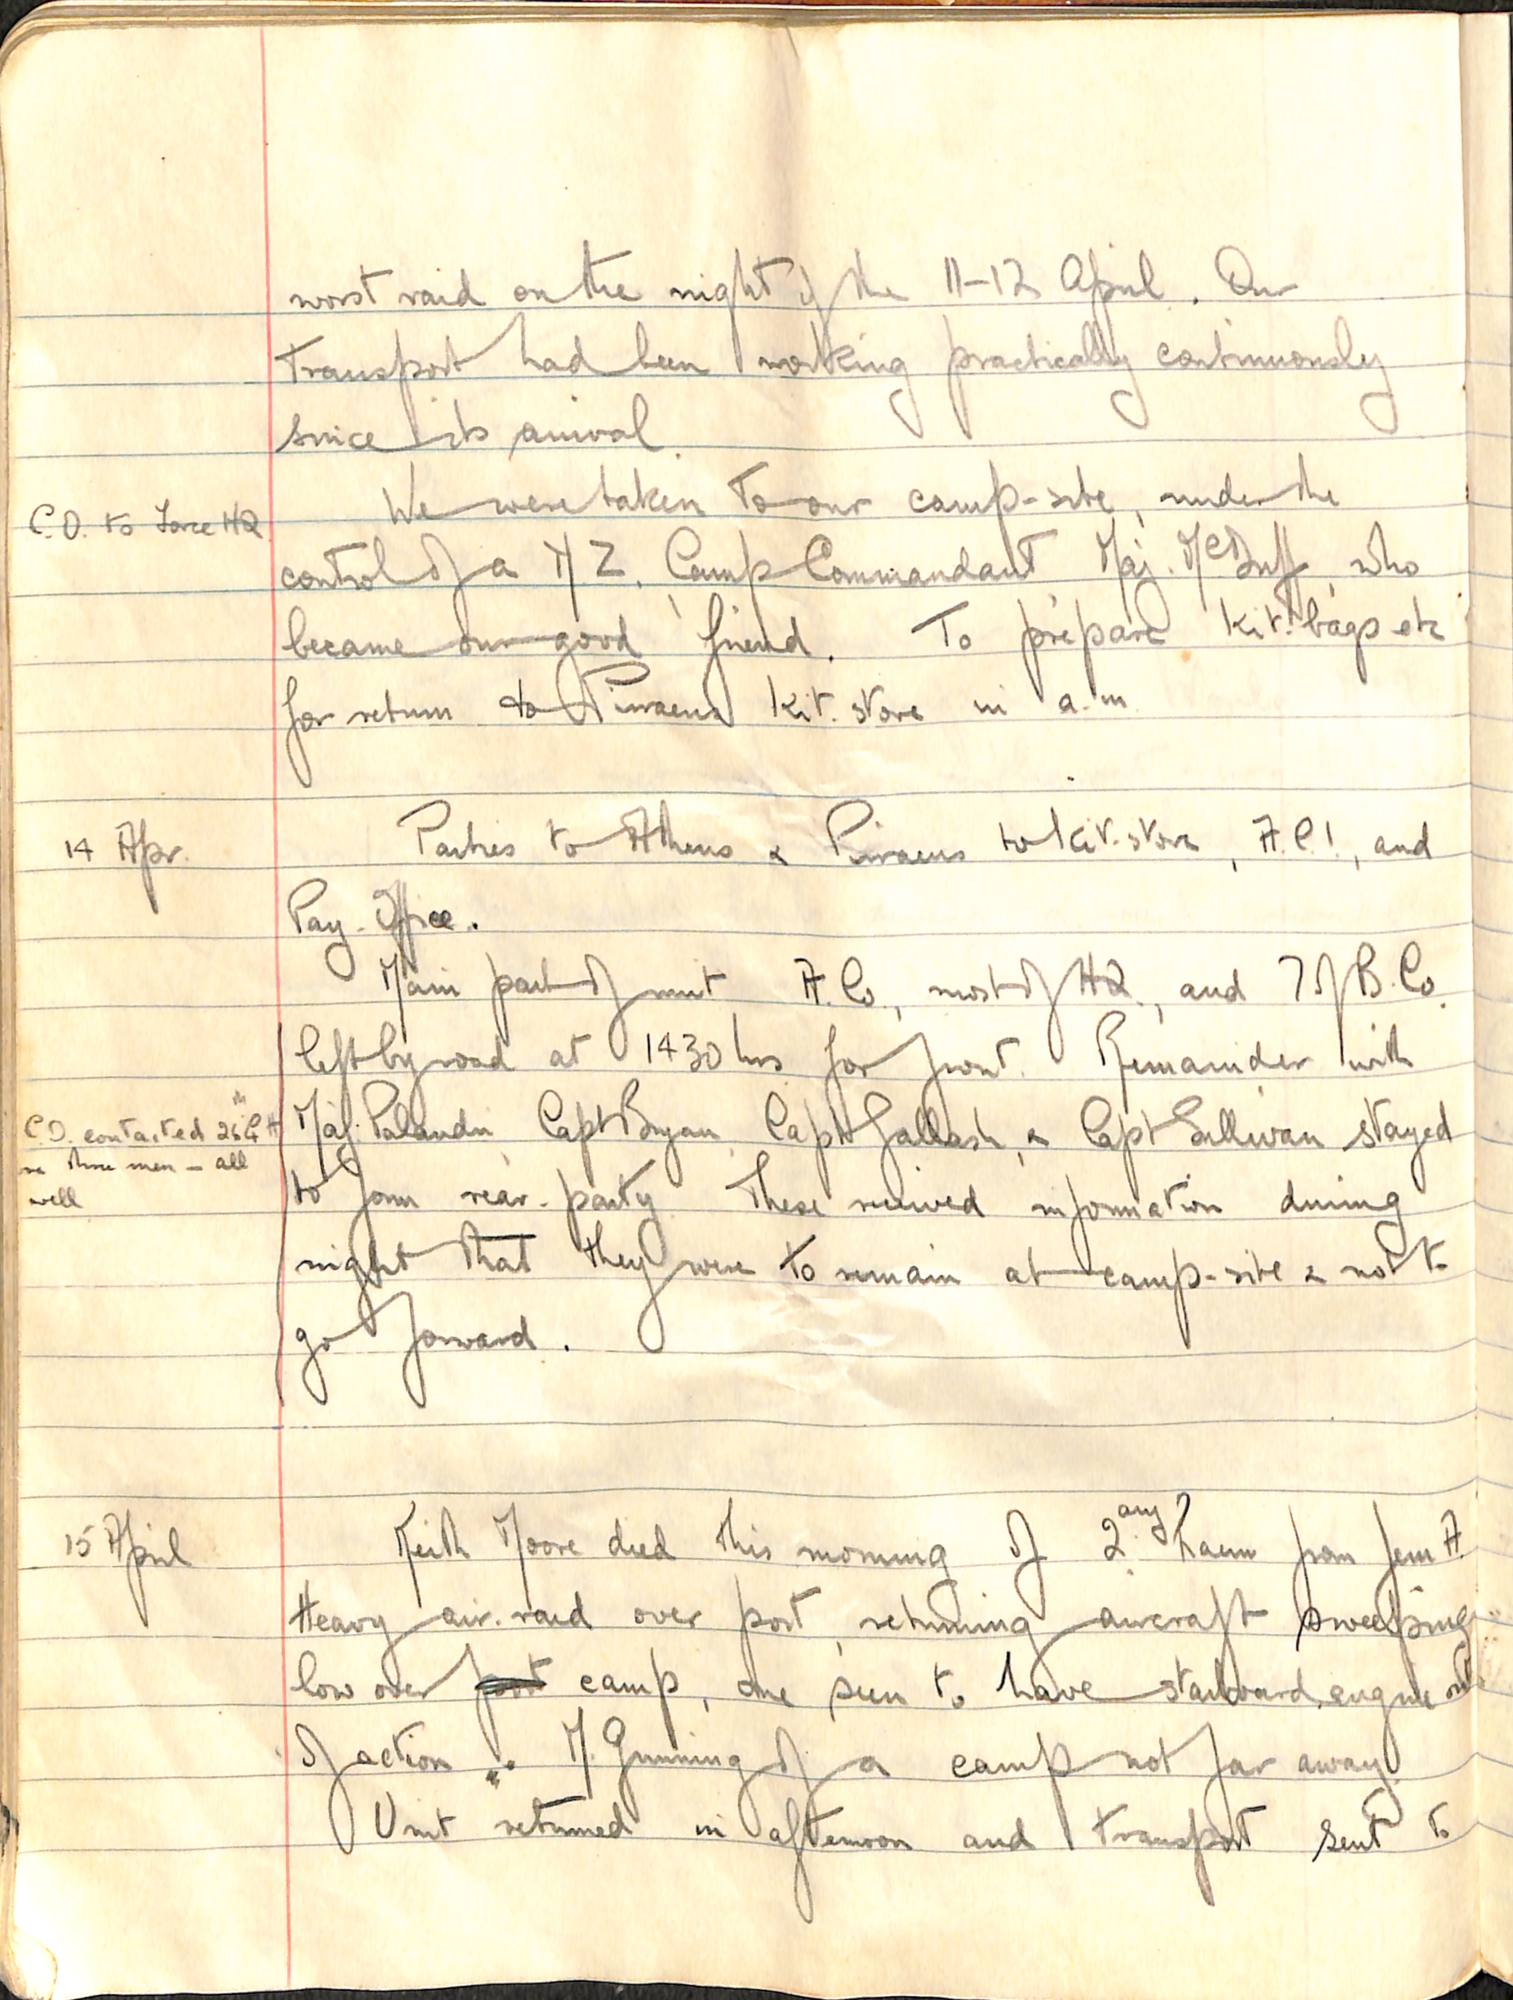 worst raid on the night of the 11-12 April. Our
Transport had been working practically continuously
since its arrival.
C.O. to Force HQ
We were taken to our camp-site, under the
control of a NZ. Camp Commandant Maj. McDuff, who
became our good friend. To prepare kit-bags etc
for return to Piraeus kit. store in a.m
14 Apr.
Parties to Athens & Piraeus to kit. store, , and
Pay-Office.
Main part of unit A. Co., most of HQ., and 7 of B. Co.
left by road at 1430 hrs for front. Remainder with
C.O. contacted 26th G H
re three men – all
well
Maj. Palandri Capt Bryan Capt Gallash, & Capt Sullivan stayed
to form rear-party. These received information during
night that they were to remain at camp-site & not to
go forward.
15 April
Keith Moore died this morning of 2ary haem from fem A.
Heavy air-raid over port, returning aircraft sweeping
low over port camp, one seen to have starboard engine out
of action .. M. Gunning of a camp not far away.
Unit returned in afternoon and transport sent to